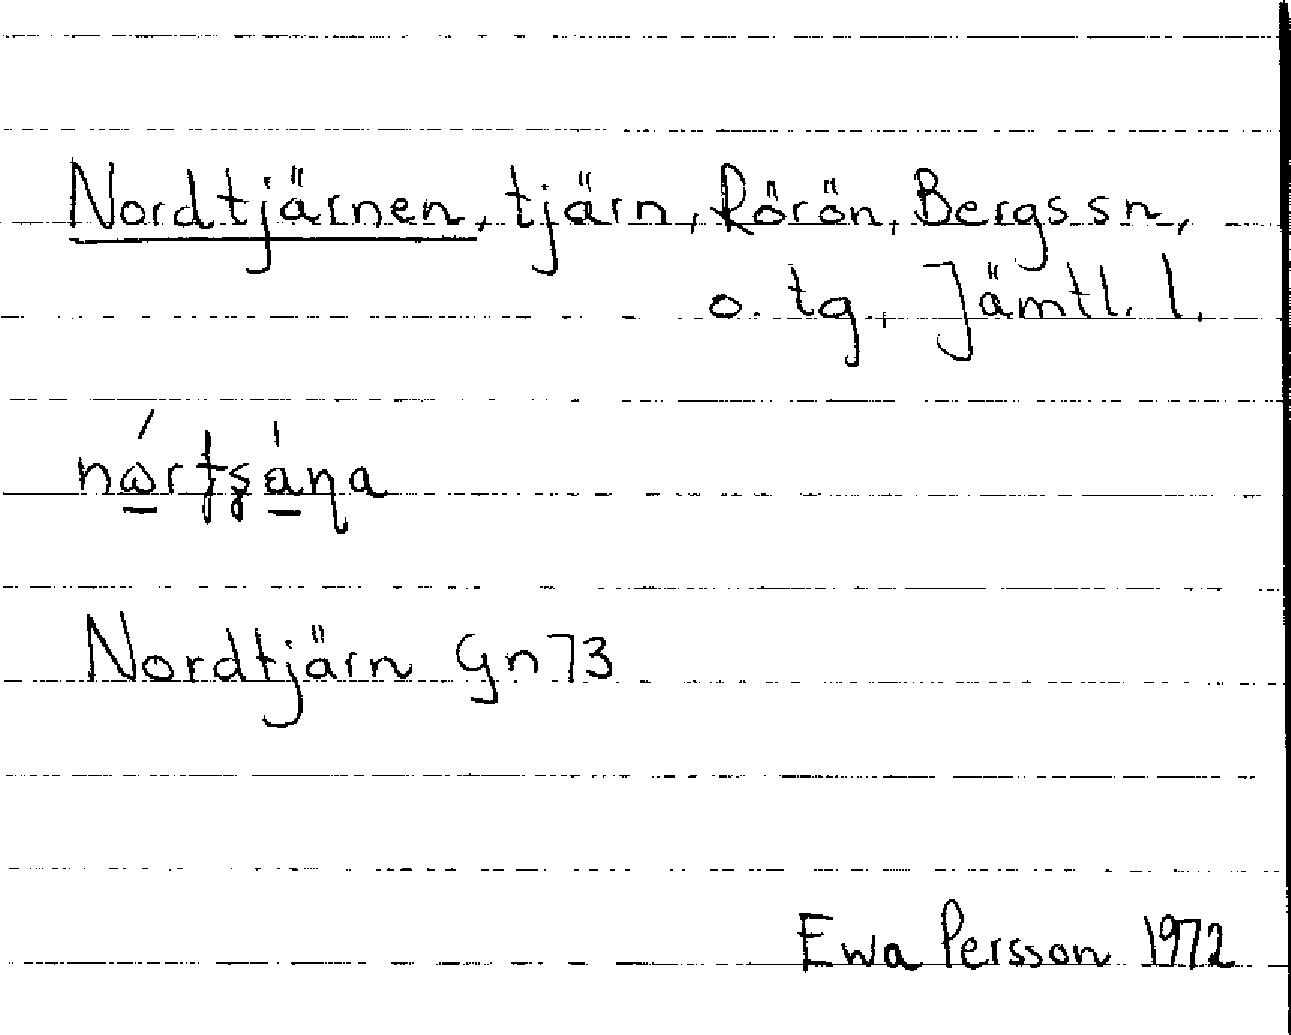 Nordtjärnen, tjärn, Rörön, Bergs sn,
o. tg, Jämtl. l.
Nordtjärn Gn 73
Ewa Persson 1972